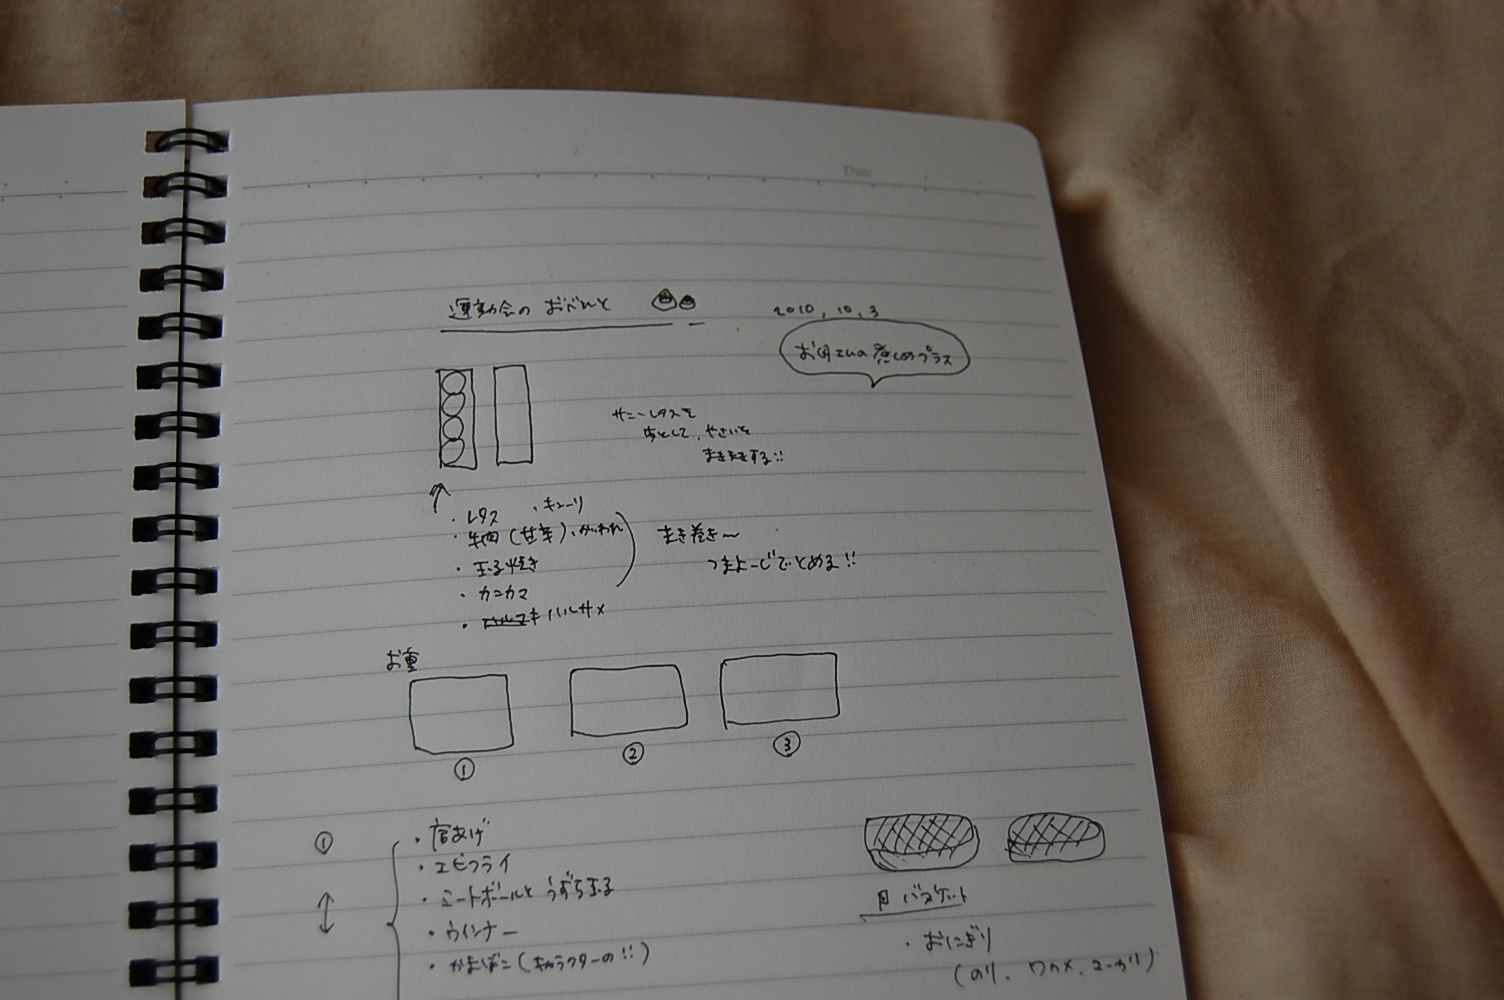 Date
運動会の おべんと
2010, 10, 3
お母さんの煮しめプラス
サニーレタスを
皮として、やさいを
まきまきする!!
・レタス ・キューリ
・牛肉(甘辛)、かいわれ
・玉子焼き
・カニカマ
・ハルサメ
まき巻き〜
つまよーじでとめる!!
お重
① ② ③
①
・唐あげ
・エビフライ
・ミートボールと うずら玉子
・ウインナー
・かまぼこ(キャラクターの!!)
バスケット
・おにぎり
(のり、ワカメ、ユーカリ)